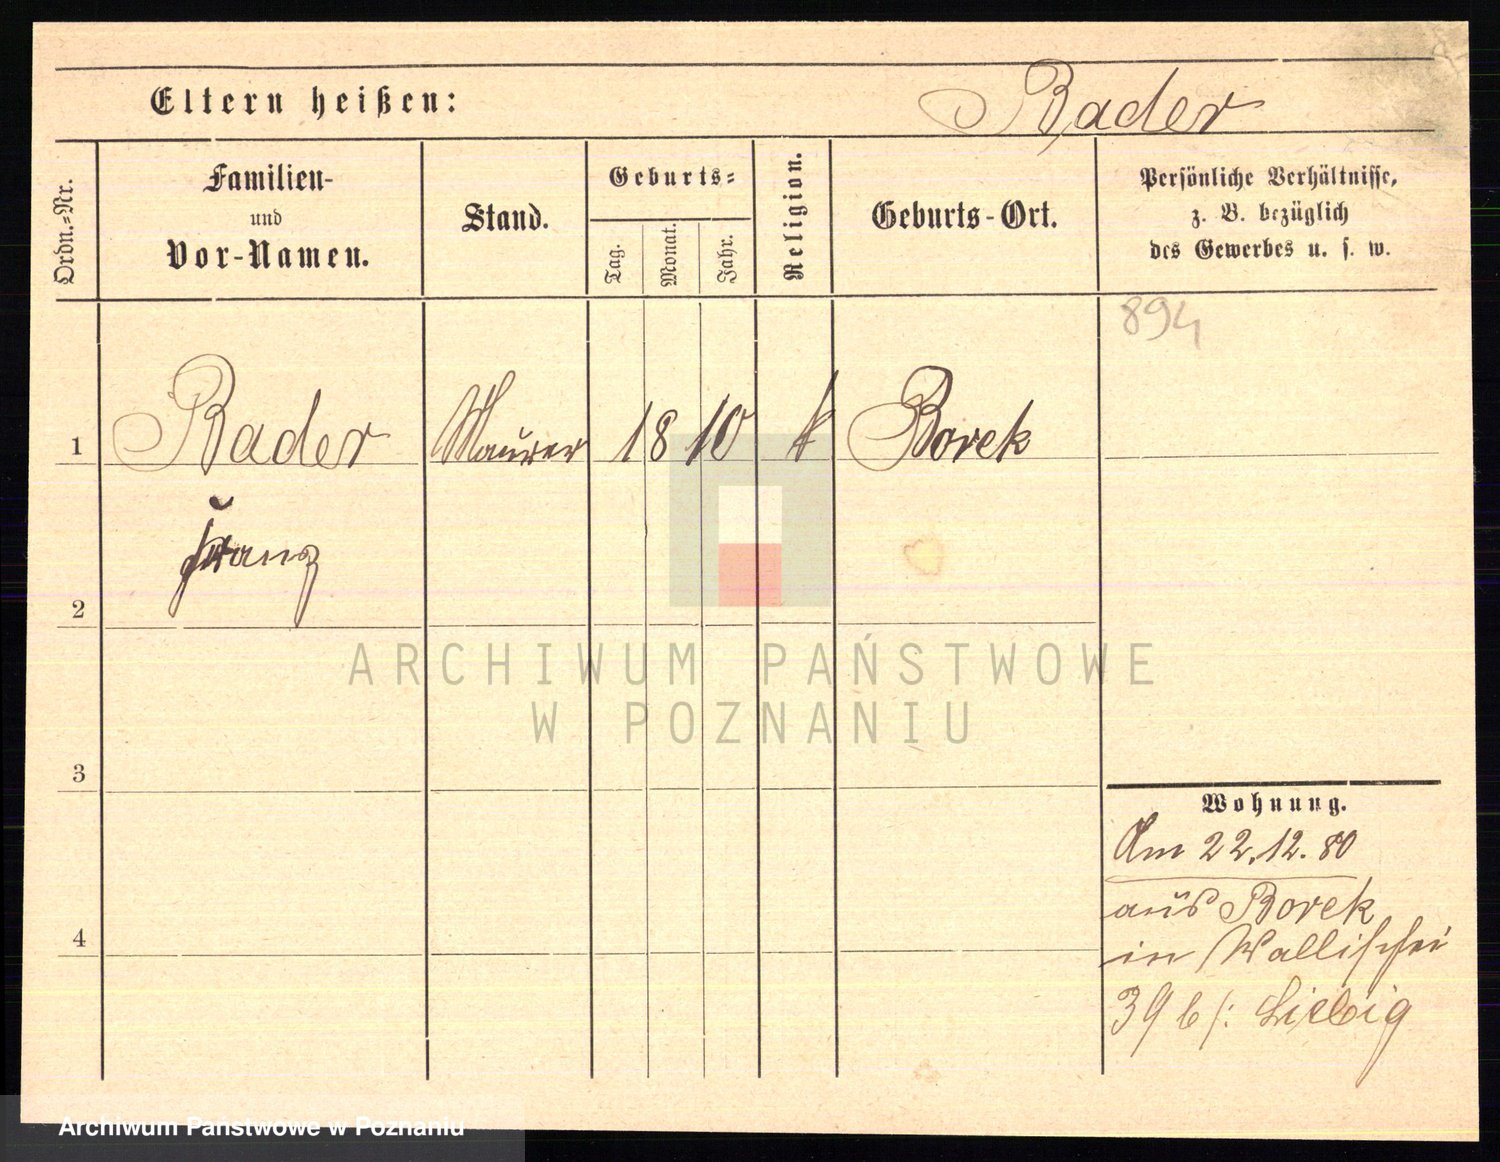 Eltern heißen: Bader
Ordn.=Nr.
Familien-
und
Vor-Namen.
Stand.
Geburts=
Tag.
Monat.
Jahr.
Religion.
Geburts-Ort.
Persönliche Verhältnisse,
z. B. bezüglich
des Gewerbes u. s. w.
894
1 Bader Maurer 1810 k Borek
Franz
2
3
4
Wohnung.
Am 22.12.80
aus Borek
in Wallischei
39 b/: Liebig
ARCHIWUM PAŃSTWOWE
W POZNANIU
Archiwum Państwowe w Poznaniu